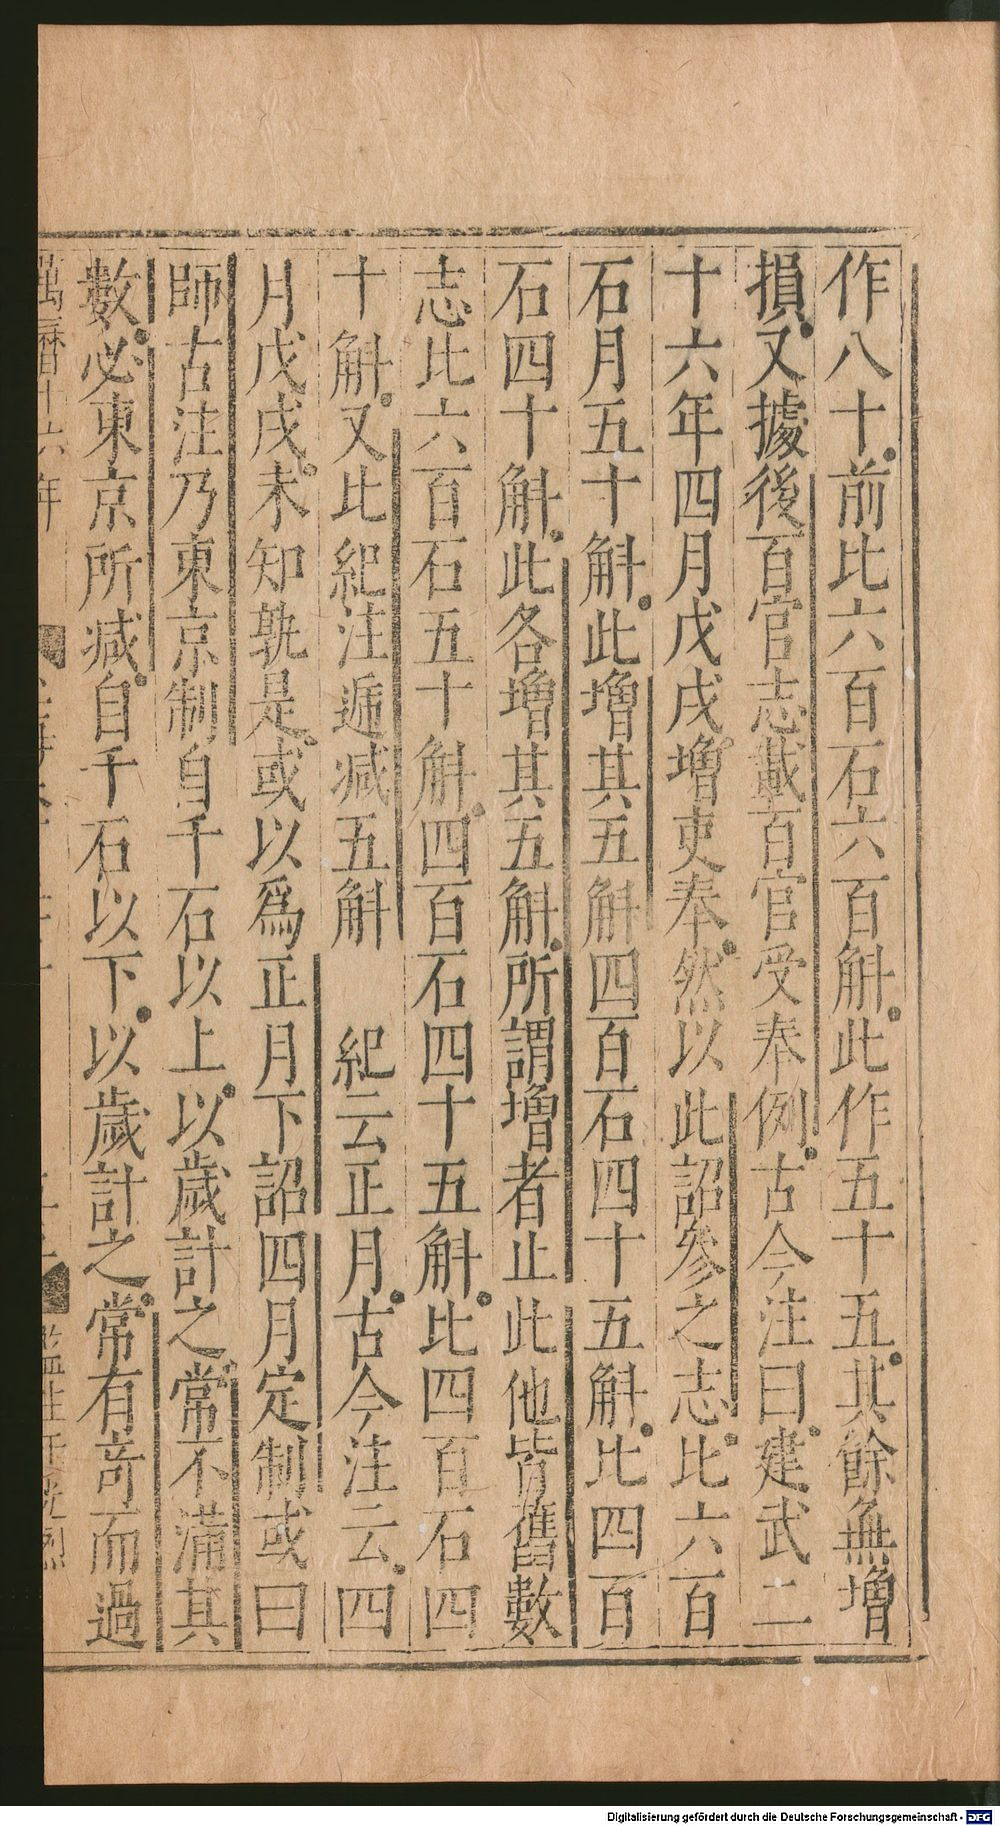 作八十前比六百石六百斛此作五十五其餘無增
損又據後百官志載百官受奉例古今注曰建武二
十六年四月戊戌增吏奉然以此詔參之志比六百
石月五十斛此增其五斛四百石四十五斛比四百
石四十斛此各增其五斛所謂增者止此他皆舊數
志比六百石五十斛四百石四十五斛比四百石四
十斛又此紀注遞減五斛 紀云正月古今注云四
月戊戌未知孰是或以爲正月下詔四月定制或曰
師古注乃東京制自千石以上以歲計之常不滿其
數必東京所減自千石以下以歲計之常有奇而過
萬曆十六年
Digitalisierung gefördert durch die Deutsche Forschungsgemeinschaft - DFG